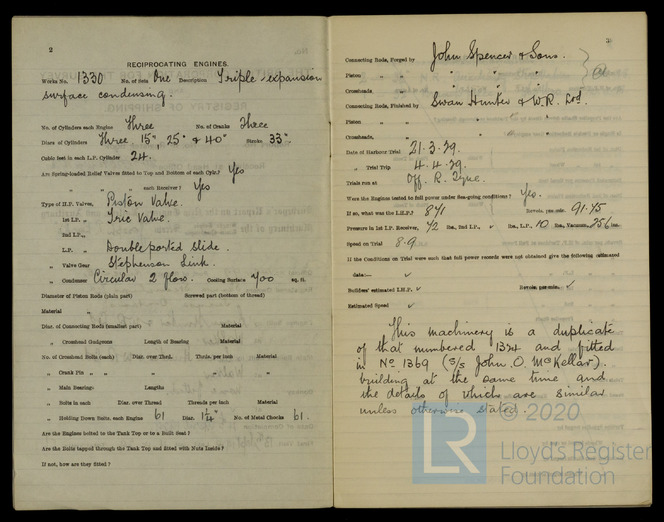 2
RECIPROCATING ENGINES.
Works No. 1330 No. of Sets One Description Triple expansion
surface condensing.
No. of Cylinders each Engine Three No. of Cranks Three
Diars of Cylinders Three, 15", 25" & 40" Stroke 33".
Cubic feet in each L.P. Cylinder 24.
Are Spring-loaded Relief Valves fitted to Top and Bottom of each Cylr.? Yes
" " " each Receiver? Yes
Type of H.P. Valves, Piston Valve.
" 1st I.P. " Tric Valve.
" 2nd I.P. "
" L.P. " Double ported slide.
" Valve Gear Stephenson Link.
" Condenser Circular 2 flow. Cooling Surface 700 sq. ft.
Diameter of Piston Rods (plain part) Screwed part (bottom of thread)
Material "
Diar. of Connecting Rods (smallest part) Material
" Crosshead Gudgeons Length of Bearing Material
No. of Crosshead Bolts (each) Diar. over Thrd. Thrds. per inch Material
" Crank Pin " " " " "
" Main Bearings Lengths
" Bolts in each Diar. over Thread Threads per inch Material
" Holding Down Bolts, each Engine 61 Diar. 1¼" No. of Metal Chocks 61.
Are the Engines bolted to the Tank Top or to a Built Seat?
Are the Bolts tapped through the Tank Top and fitted with Nuts Inside?
If not, how are they fitted?
Connecting Rods, Forged by John Spencer & Sons.
Piston " " "
Crossheads, " " "
Connecting Rods, Finished by Swan Hunter & W.R. Ltd.
Piston " " "
Crossheads, " " "
Date of Harbour Trial 21.3.29.
" Trial Trip 4.4.29.
Trials run at Off R. Tyne.
Were the Engines tested to full power under Sea-going conditions? Yes.
If so, what was the I.H.P.? 841 Revols. per min. 91.45
Pressure in 1st I.P. Receiver, 72 lbs., 2nd I.P., lbs., L.P., 10 lbs., Vacuum, ins.
Speed on Trial 8.9
If the Conditions on Trial were such that full power records were not obtained give the following estimated
data:— ✓
Builders' estimated I.H.P. ✓ Revols. per min. ✓
Estimated Speed ✓
This machinery is a duplicate
of that numbered 1324 and fitted
in No 1369 (S/S John. O. McKellar).
building at the same time and
the details of which are similar
unless otherwise stated.
© 2020
LR
Lloyd's Register
Foundation